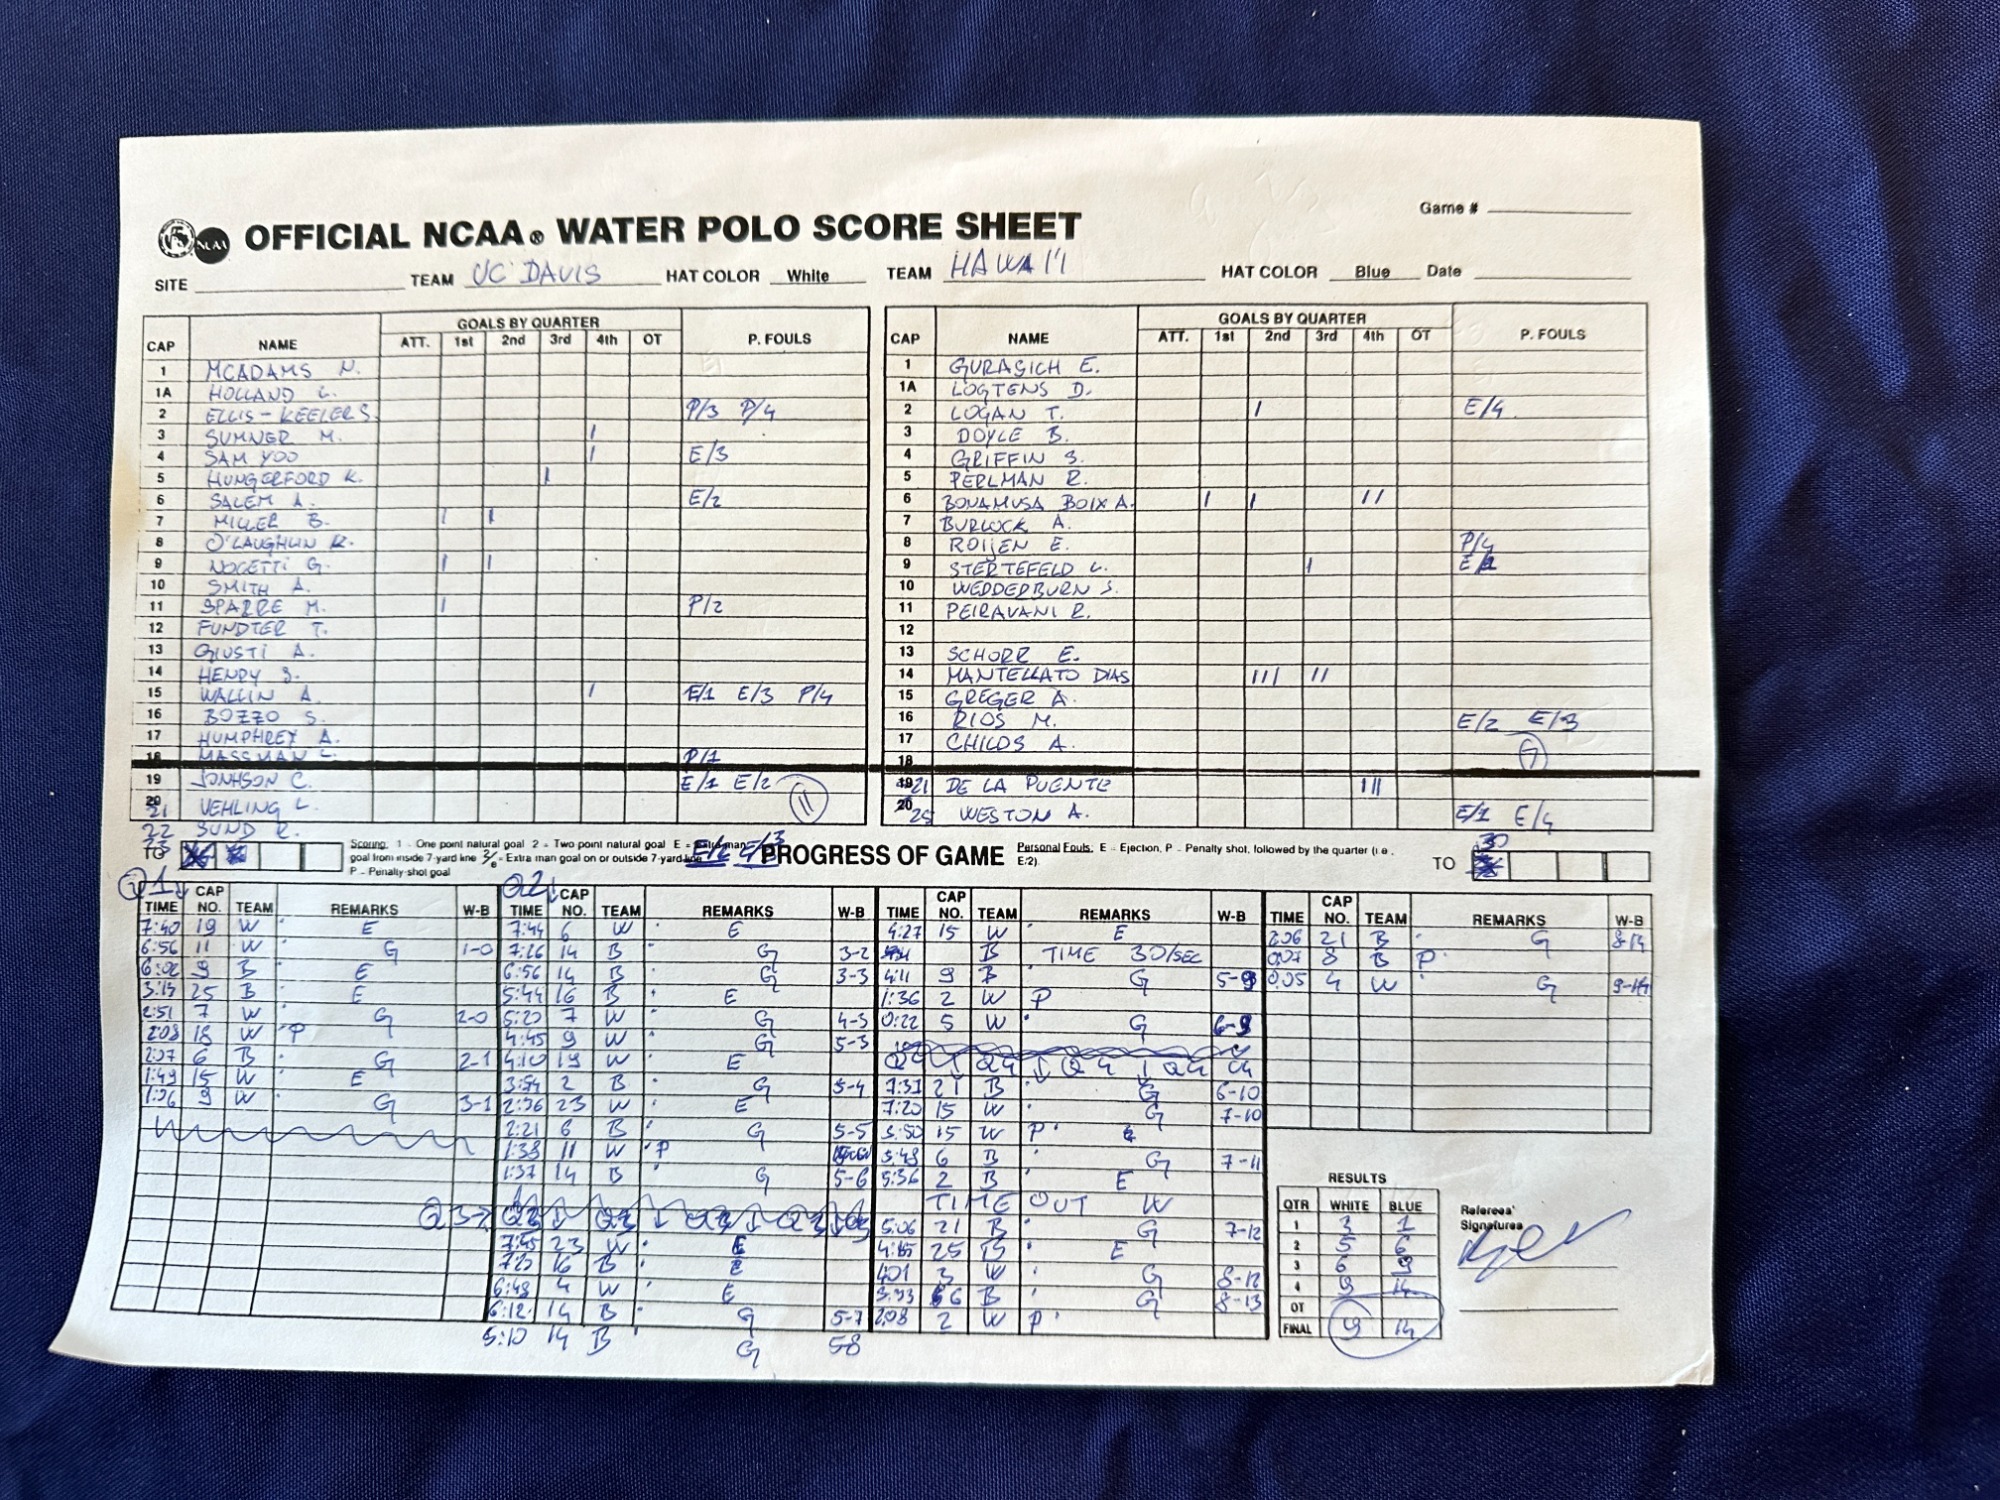 OFFICIAL NCAA® WATER POLO SCORE SHEET
Game #
SITE TEAM UC DAVIS HAT COLOR White TEAM HAWAI'I HAT COLOR Blue Date
CAP NAME GOALS BY QUARTER P. FOULS
ATT. 1st 2nd 3rd 4th OT
1 MCADAMS N.
1A HOLLAND L.
2 ELLIS-KEELER S. P/3 P/4
3 SUMNER M. I
4 SAM YOO I E/3
5 HUNGERFORD K. I
6 SALEM A. E/2
7 MILLER B. I I
8 O'LAUGHLIN R.
9 NOCETTI G. I I
10 SMITH A.
11 SPARRE M. I P/2
12 FUNDTER T.
13 GIUSTI A.
14 HENRY S.
15 WALLIN A. I E/1 E/3 P/4
16 BOZZO S.
17 HUMPHREY A.
18 MASSMAN L. P/1
19 JONHSON C. E/1 E/2 11
20 21 VEHLING L.
22 SUND R.
23 E/2 E/3
CAP NAME GOALS BY QUARTER P. FOULS
ATT. 1st 2nd 3rd 4th OT
1 GURASICH E.
1A LOGTENS D.
2 LOGAN T. I E/4
3 DOYLE B.
4 GRIFFIN S.
5 PERLMAN R.
6 BONAMUSA BOIX A. I I II
7 BURLOCK A.
8 ROIJEN E. P/4
9 STERTEFELD L. I E/1
10 WEDDERBURN S.
11 PEIRAVANI R.
12
13 SCHORR E.
14 MANTELLATO DIAS III II
15 GREGER A.
16 RIOS M. E/2 E/3
17 CHILDS A. 7
18
19 21 DE LA PUENTE III
20 25 WESTON A. E/1 E/4
TO
Scoring: 1 - One point natural goal 2 - Two point natural goal E - Extra-man
goal from inside 7-yard line 2/e - Extra man goal on or outside 7-yard line
P - Penalty-shot goal
PROGRESS OF GAME
Personal Fouls: E - Ejection, P - Penalty shot, followed by the quarter (i.e.,
E/2)
TO 30
Q1
TIME CAP NO. TEAM REMARKS W-B
7:40 19 W E
6:56 11 W G 1-0
6:02 9 B E
3:13 25 B E
2:51 7 W G 2-0
2:08 18 W P
2:07 6 B G 2-1
1:49 15 W E
1:26 9 W G 3-1
Q2
TIME CAP NO. TEAM REMARKS W-B
7:44 6 W E
7:26 14 B G 3-2
6:56 14 B G 3-3
5:44 16 B E
5:20 7 W G 4-3
4:45 9 W G 5-3
4:10 19 W E
3:54 2 B G 5-4
2:36 23 W E
2:21 6 B G 5-5
1:38 11 W P
1:37 14 B G 5-6
Q3 Q3 Q3 Q3 Q3 Q3
7:45 23 W E
7:25 16 B E
6:48 4 W E
6:12 14 B G 5-7
5:10 14 B G 5-8
TIME CAP NO. TEAM REMARKS W-B
4:27 15 W E
B TIME 30/SEC
4:11 9 B G 5-9
1:36 2 W P
0:22 5 W G 6-9
Q4 Q4 Q4 Q4 Q4
7:31 21 B G 6-10
7:20 15 W G 7-10
5:50 15 W P
5:48 6 B G 7-11
5:36 2 B E
TIME OUT W
5:06 21 B G 7-12
4:15 25 B E
4:01 3 W G 8-12
3:33 6 B G 8-13
2:08 2 W P
TIME CAP NO. TEAM REMARKS W-B
2:06 21 B G 8-14
0:07 8 B P
0:05 4 W G 9-14
RESULTS
QTR WHITE BLUE
1 3 1
2 5 6
3 6 9
4 9 14
OT
FINAL 9 14
Referees'
Signatures